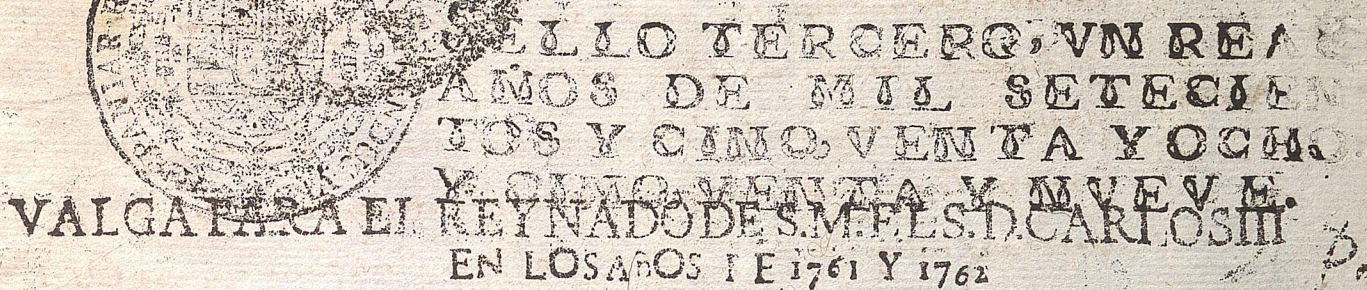 SELLO TERCERO, VN REA
AÑOS DE MIL SETECIEN
TOS Y CINQVENTA YOCHO.
Y CINQVENTA Y NVEVE.
VALGA PARA EL REYNADO DE S.M. EL S.D. CARLOS III
EN LOS AÑOS DE 1761 Y 1762